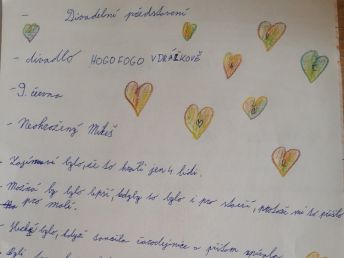 - Divadelní představení
- divadlo HOGO FOGO V DRÁŽKOVĚ
- 9. června
- Neohrožený Mikeš
- Zajímavé bylo, že to hráli jen 4 lidi.
- Možná by bylo lepší, kdyby to bylo i pro starší, protože mi to přišlo
pro malé.
- Hezké bylo, když tančila čarodějnice a přitom